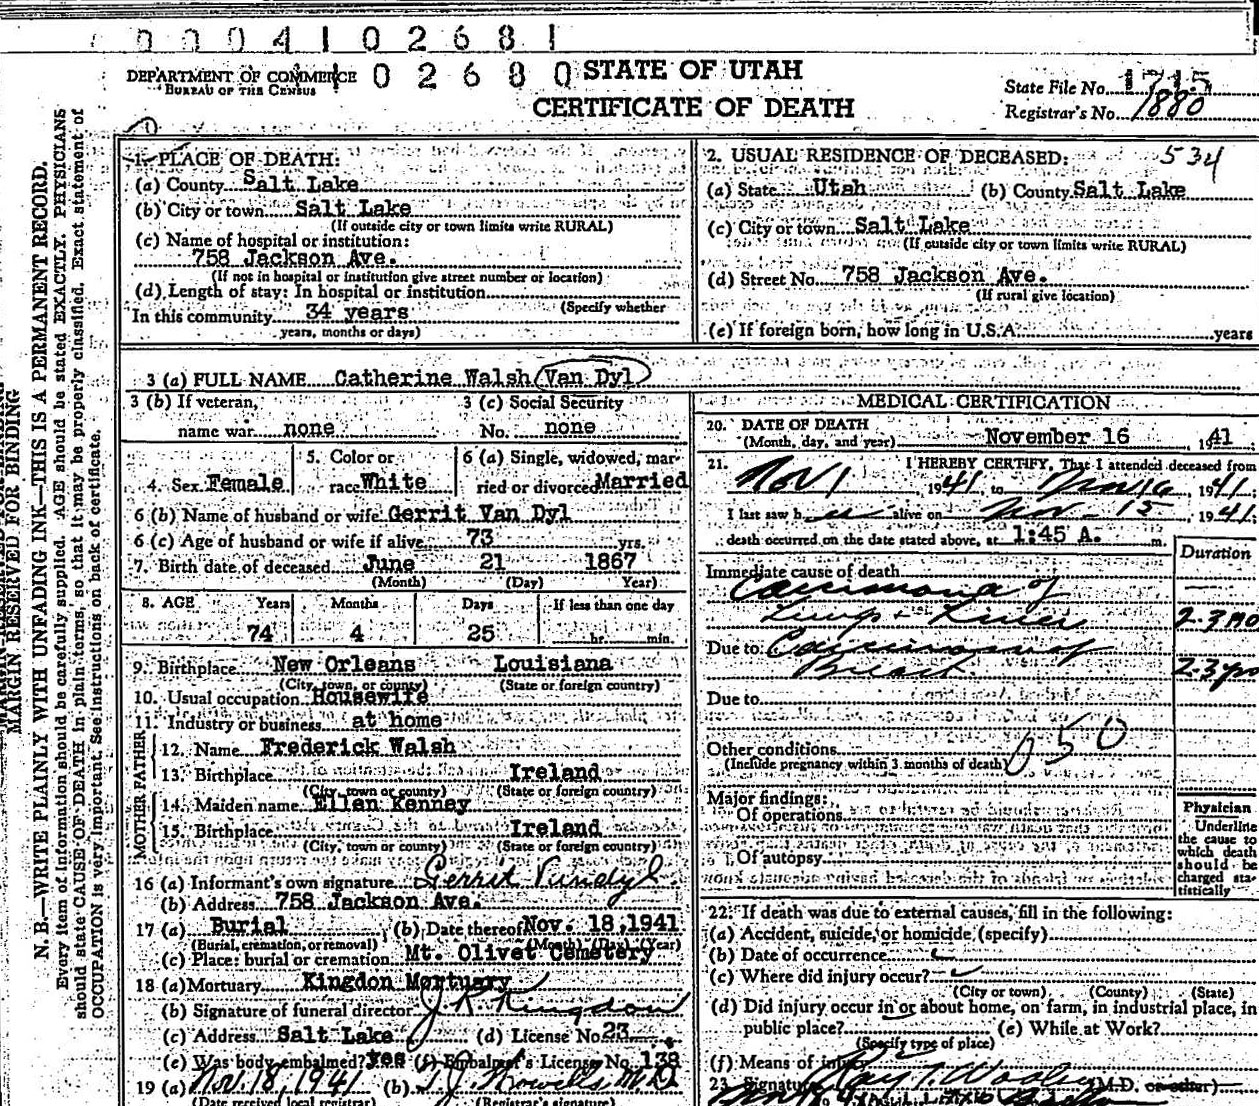 0 0 0 4 1 0 2 6 8 1
DEPARTMENT OF COMMERCE
BUREAU OF THE CENSUS
1 0 2 6 8 0
STATE OF UTAH
CERTIFICATE OF DEATH
State File No. 1715
Registrar's No. 1880
MARGIN RESERVED FOR BINDING
N. B.—WRITE PLAINLY WITH UNFADING INK—THIS IS A PERMANENT RECORD.
Every item of information should be carefully supplied. AGE should be stated EXACTLY. PHYSICIANS
should state CAUSE OF DEATH in plain terms, so that it may be properly classified. Exact statement of
OCCUPATION is very important. See instructions on back of certificate.
1. PLACE OF DEATH:
(a) County Salt Lake
(b) City or town Salt Lake
(If outside city or town limits write RURAL)
(c) Name of hospital or institution:
758 Jackson Ave.
(If not in hospital or institution give street number or location)
(d) Length of stay: In hospital or institution
(Specify whether
In this community 34 years
years, months or days)
2. USUAL RESIDENCE OF DECEASED: 534
(a) State Utah (b) County Salt Lake
(c) City or town Salt Lake
(If outside city or town limits write RURAL)
(d) Street No. 758 Jackson Ave.
(If rural give location)
(e) If foreign born, how long in U.S.A. years
3 (a) FULL NAME Catherine Walsh Van Dyl
3 (b) If veteran, name war none
3 (c) Social Security No. none
4. Sex Female
5. Color or race White
6 (a) Single, widowed, married or divorced Married
6 (b) Name of husband or wife Gerrit Van Dyl
6 (c) Age of husband or wife if alive 73 yrs.
7. Birth date of deceased June 21 1867
(Month) (Day) Year)
8. AGE Years Months Days If less than one day
74 4 25 hr. min.
9. Birthplace New Orleans Louisiana
(City, town, or county) (State or foreign country)
10. Usual occupation Housewife
11. Industry or business at home
FATHER
12. Name Frederick Walsh
13. Birthplace Ireland
(City, town or county) (State or foreign country)
MOTHER
14. Maiden name Ellen Kenney
15. Birthplace Ireland
(City, town or county) (State or foreign country)
16 (a) Informant's own signature Gerrit Vandyl
(b) Address 758 Jackson Ave.
17 (a) Burial (b) Date thereof Nov. 18, 1941
(Burial, cremation, or removal) (Month) (Day) (Year)
(c) Place: burial or cremation Mt. Olivet Cemetery
18 (a) Mortuary Kingdon Mortuary
(b) Signature of funeral director J. K. Kingdon
(c) Address Salt Lake (d) License No. 23
(e) Was body embalmed? yes (f) Embalmer's License No. 138
19 (a) Nov. 18, 1941 (b) Howells, M.D.
(Date received local registrar) (Registrar's signature)
MEDICAL CERTIFICATION
20. DATE OF DEATH
(Month, day, and year) November 16, 1941
21. I HEREBY CERTIFY, That I attended deceased from
Nov 1, 1941 to Nov 16, 1941
I last saw her alive on Nov - 15, 1941.
death occurred on the date stated above, at 1:45 A. m.
Duration
Immediate cause of death
Carcinoma of
Lungs + Liver 2-3 mo
Due to Carcinoma of
Breast 2-3 yrs
Due to
Other conditions 050
(Include pregnancy within 3 months of death)
Major findings:
Of operations
Of autopsy
Physician
Underline
the cause to
which death
should be
charged sta-
tistically
22. If death was due to external causes, fill in the following:
(a) Accident, suicide, or homicide (specify)
(b) Date of occurrence
(c) Where did injury occur?
(City or town) (County) (State)
(d) Did injury occur in or about home, on farm, in industrial place, in
public place? (e) While at Work?
(Specify type of place)
(f) Means of injury
23. Signature (M.D. or other)